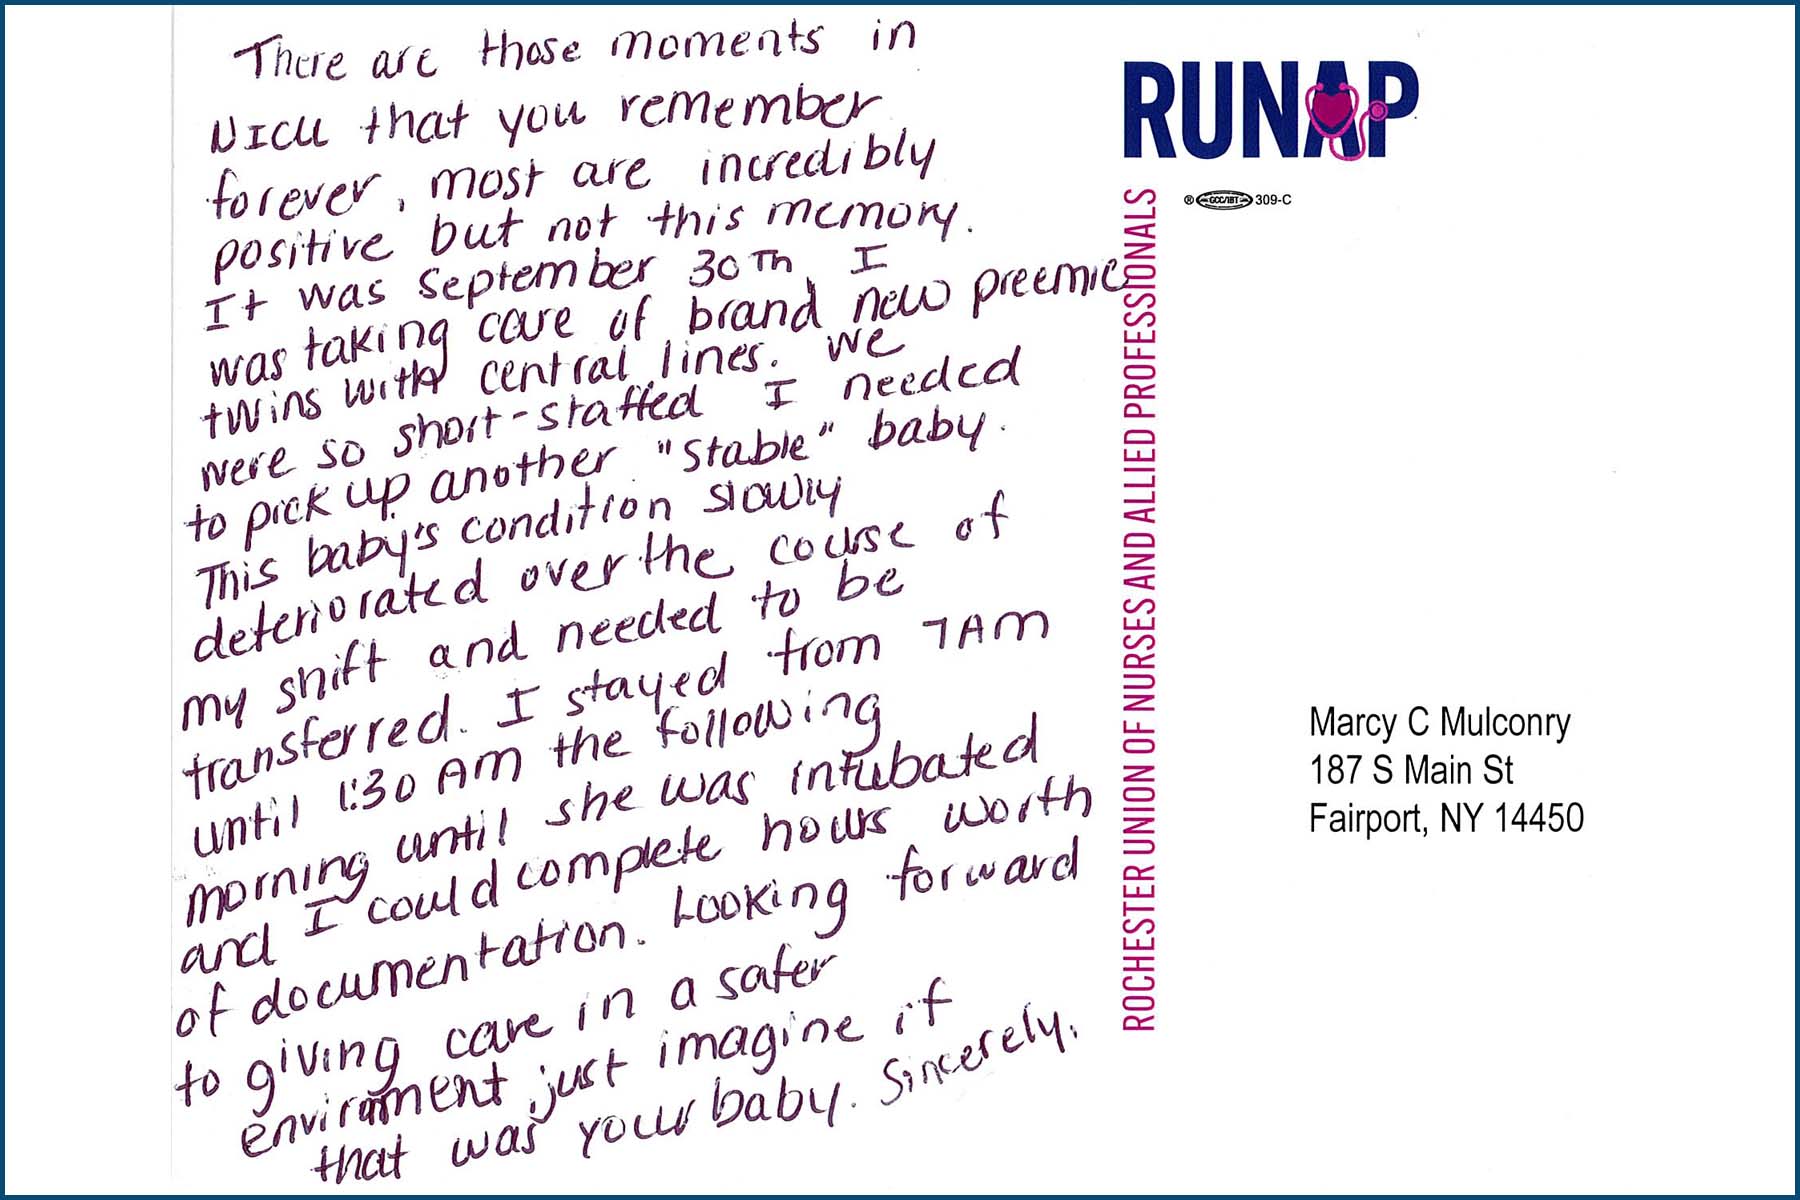 There are those moments in
NICU that you remember
forever, most are incredibly
positive but not this memory.
It was September 30TH I
was taking care of brand new preemie
twins with central lines. We
were so short-staffed I needed
to pick up another "stable" baby.
This baby's condition slowly
deteriorated over the course of
my shift and needed to be
transferred. I stayed from 7AM
until 1:30 AM the following
morning until she was intubated
and I could complete hours worth
of documentation. Looking forward
to giving care in a safer
enviroment just imagine if
that was your baby. Sincerely,
RUNAP
® GCC/IBT 309-C
ROCHESTER UNION OF NURSES AND ALLIED PROFESSIONALS
Marcy C Mulconry
187 S Main St
Fairport, NY 14450